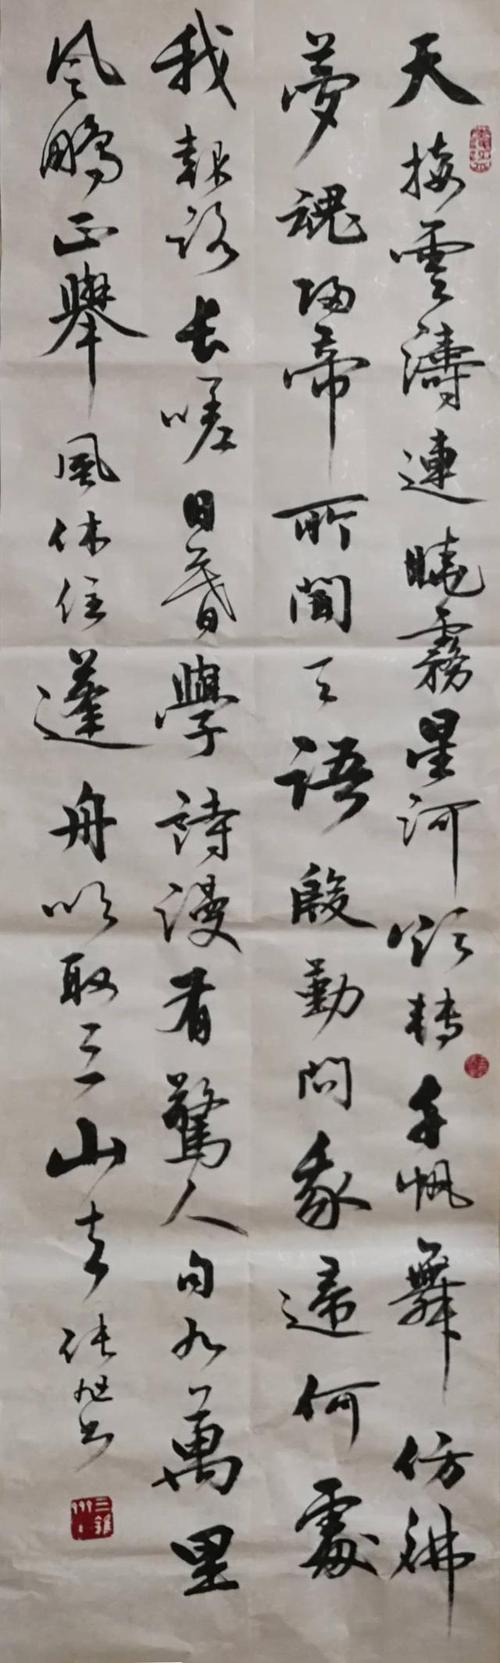 天接雲濤連曉霧星河欲轉千帆舞仿彿
夢魂歸帝所聞天語殷勤問我歸何處
我報路長嗟日暮學詩漫有驚人句九萬里
風鵬正舉風休住蓬舟吹取三山去張旭书